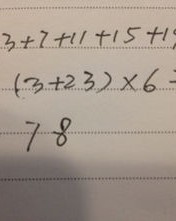 3+7+11+15+19
(3+23)×6
78